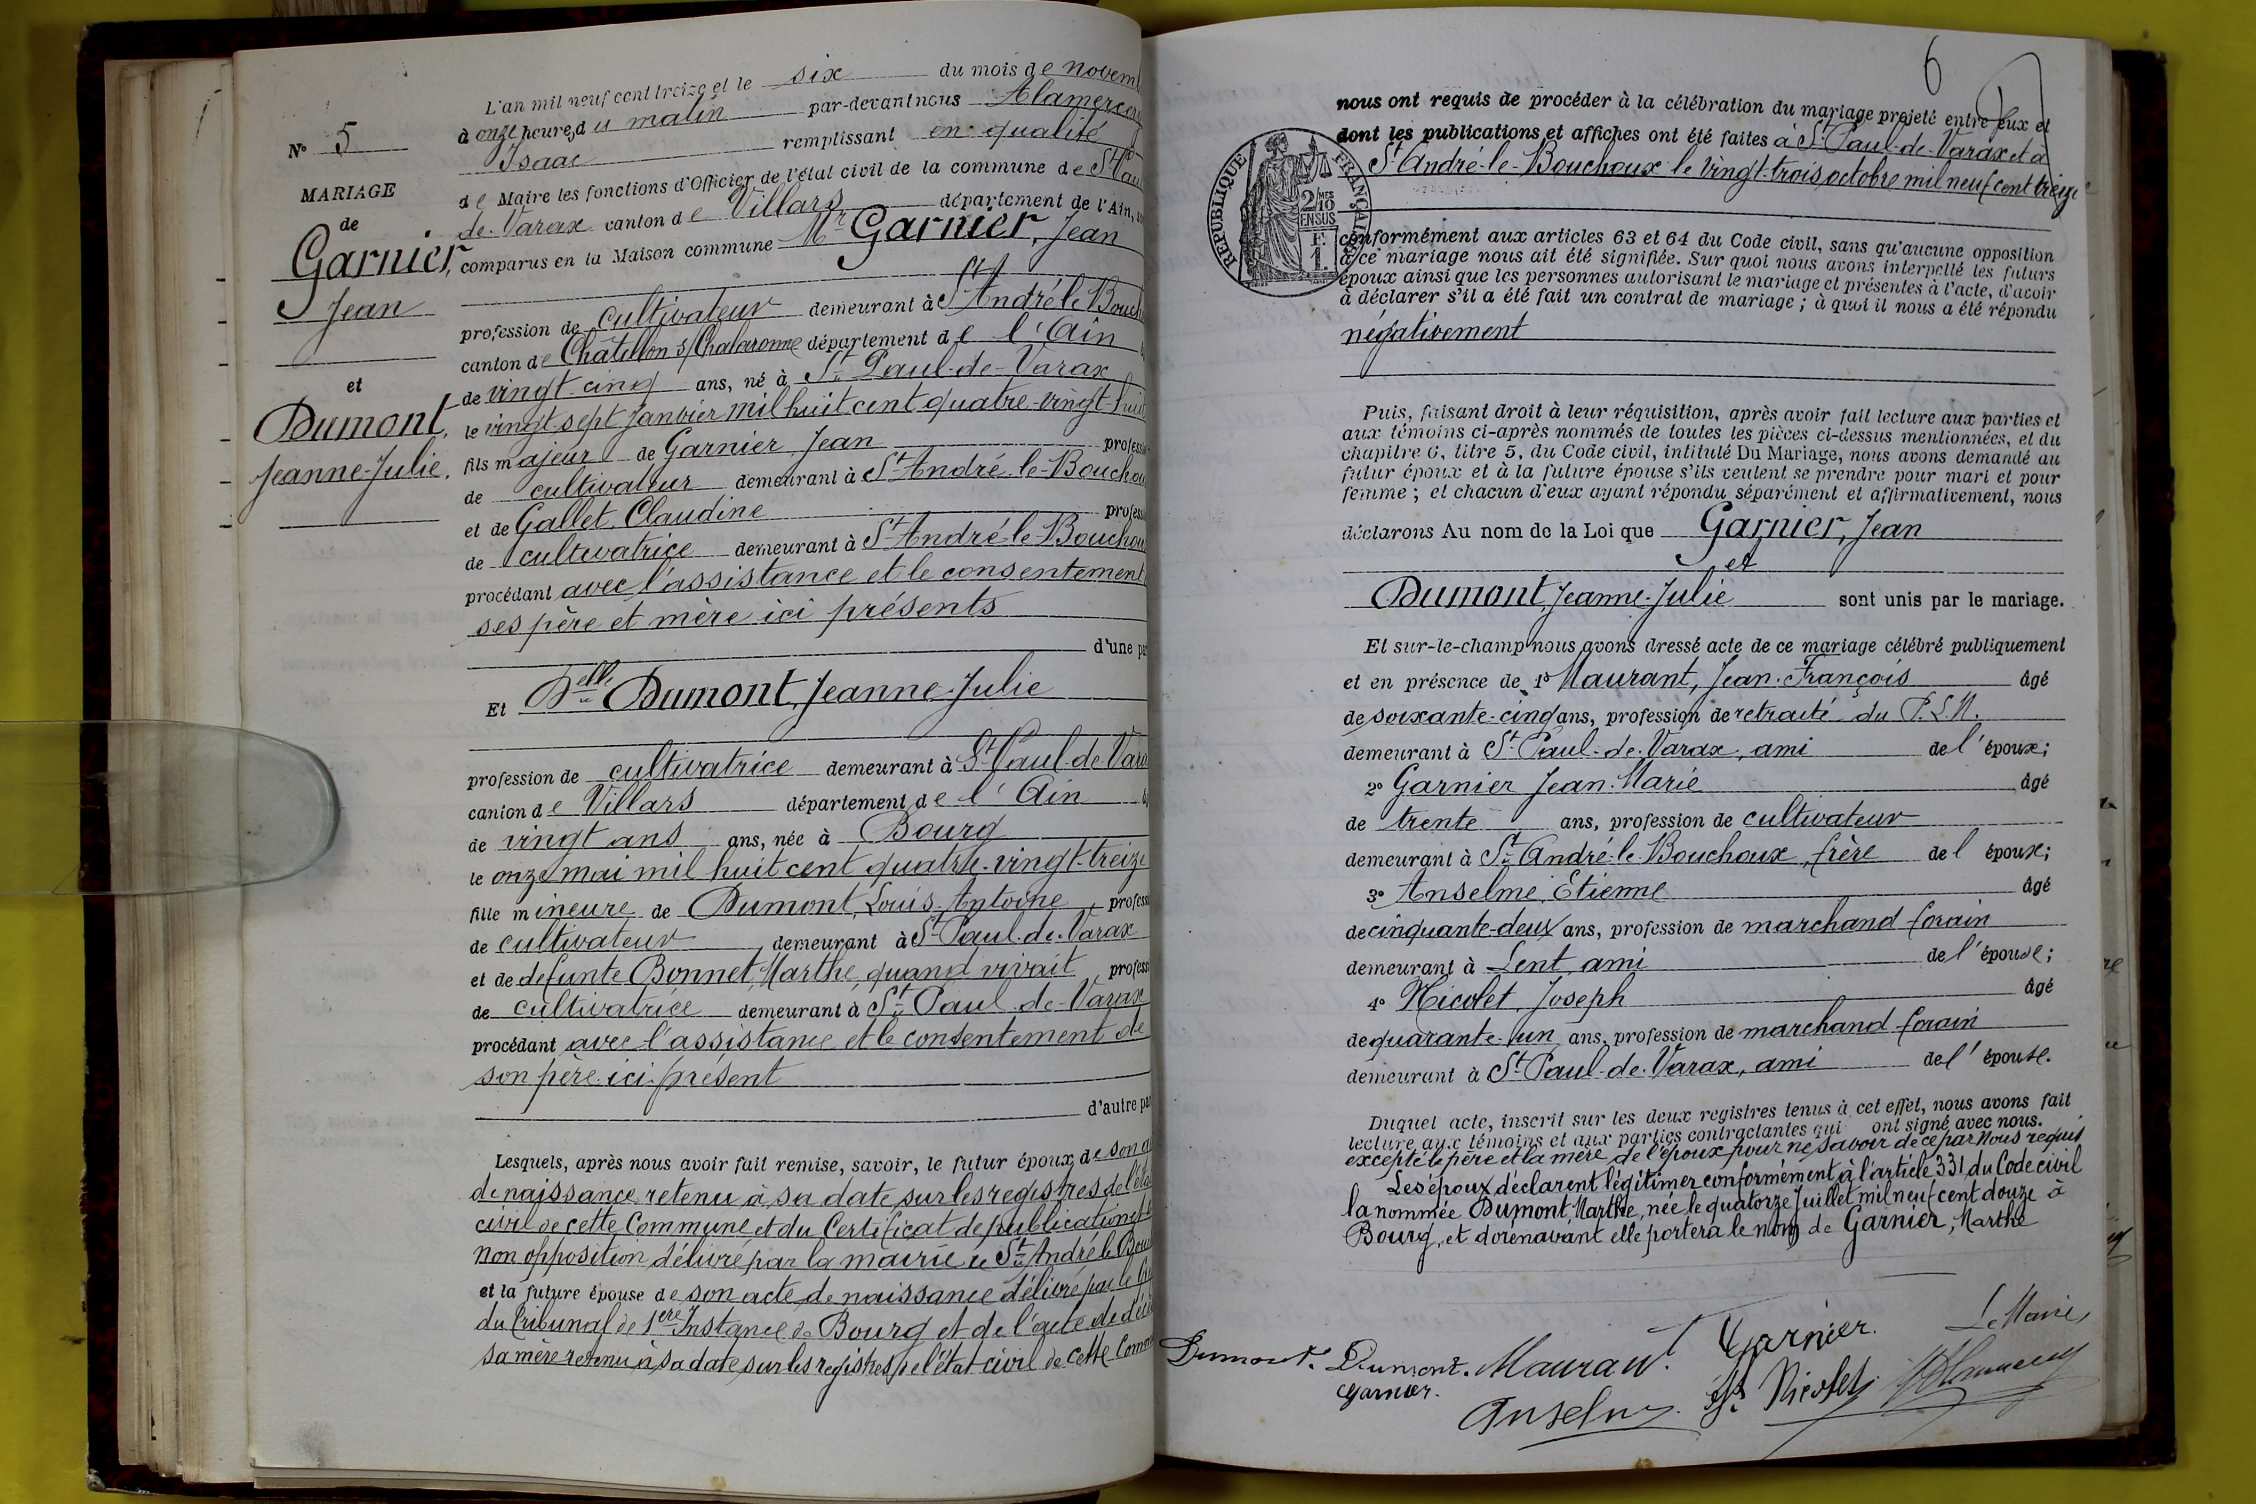 L'an mil neuf cent treize et le six du mois de novem
à onze heures du matin par-devant nous Alamercery
Isaac remplissant en qualité
de Maire les fonctions d'Officier de l'état civil de la commune de St Paul
de-Varax canton de Villars département de l'Ain,
comparus en la Maison commune Mr Garnier, Jean
N° 5
MARIAGE
de
Garnier,
Jean
et
Dumont,
Jeanne-Julie.
profession de cultivateur demeurant à St André-le-Bouch
canton de Châtillon s/Chalaronne département de l'Ain
de vingt-cinq ans, né à St Paul-de-Varax
le vingt-sept Janvier mil huit cent quatre-vingt-huit
fils majeur de Garnier, Jean profession
de cultivateur demeurant à St André-le-Bouchou
et de Gallet, Claudine professi
de cultivatrice demeurant à St André-le-Bouchou
procédant avec l'assistance et le consentement
ses père et mère ici présents
d'une pa
Et Delle Dumont, Jeanne-Julie
profession de cultivatrice demeurant à St Paul-de-Vara
canton de Villars département de l'Ain
de vingt ans ans, née à Bourg
le onze mai mil huit cent quatre-vingt-treize
fille mineure de Dumont, Louis-Antoine, professi
de cultivateur demeurant à St Paul-de-Varax
et de defunte Bonnet, Marthe, quand vivait, profess
de cultivatrice demeurant à St Paul-de-Varax
procédant avec l'assistance et le consentement de
son père ici présent
d'autre par
Lesquels, après nous avoir fait remise, savoir, le futur époux de son a
de naissance retenu à sa date sur les registres de l'éta
civil de cette Commune et du Certificat de publication et
non opposition délivré par la mairie de St André-le-Bou
et la future épouse de son acte de naissance délivré par le Gre
du Tribunal de 1ere Instance de Bourg et de l'acte de décè
sa mère retenu à sa date sur les registres de l'état civil de cette Comm
6
nous ont requis de procéder à la célébration du mariage projeté entre eux et
dont les publications et affiches ont été faites à St Paul-de-Varax et à
St André-le-Bouchoux le vingt-trois octobre mil neuf cent treize
RÉPUBLIQUE FRANÇAISE
2/10
EN SUS
1 F.
conformément aux articles 63 et 64 du Code civil, sans qu'aucune opposition
à ce mariage nous ait été signifiée. Sur quoi nous avons interpellé les futurs
époux ainsi que les personnes autorisant le mariage et présentes à l'acte, d'avoir
à déclarer s'il a été fait un contrat de mariage ; à quoi il nous a été répondu
négativement
Puis, faisant droit à leur réquisition, après avoir fait lecture aux parties et
aux témoins ci-après nommés de toutes les pièces ci-dessus mentionnées, et du
chapitre 6, titre 5, du Code civil, intitulé Du Mariage, nous avons demandé au
futur époux et à la future épouse s'ils veulent se prendre pour mari et pour
femme ; et chacun d'eux ayant répondu séparément et affirmativement, nous
déclarons Au nom de la Loi que Garnier, Jean
et
Dumont, Jeanne-Julie sont unis par le mariage.
Et sur-le-champ nous avons dressé acte de ce mariage célébré publiquement
et en présence de 1° Maurant, Jean-François âgé
de soixante-cinq ans, profession de retraité du P.L.M.
demeurant à St Paul-de-Varax, ami de l'époux;
2° Garnier Jean-Marie âgé
de trente ans, profession de cultivateur
demeurant à St André-le-Bouchoux, frère de l époux;
3° Anselme, Etienne âgé
de cinquante-deux ans, profession de marchand forain
demeurant à Lent, ami de l'épouse;
4° Nicolet, Joseph âgé
de quarante-un ans, profession de marchand forain
demeurant à St Paul-de-Varax, ami de l'épouse.
Duquel acte, inscrit sur les deux registres tenus à cet effet, nous avons fait
lecture aux témoins et aux parties contractantes qui ont signé avec nous.
excepté le père et la mère de l'époux pour ne savoir de ce par Nous requis
Les époux déclarent légitimer conformément à l'article 331 du Code civil
la nommée Dumont, Marthe, née le quatorze Juillet mil neuf cent douze à
Bourg, et dorénavant elle portera le nom de Garnier, Marthe
Le Maire,
Dumont. Dumont. Mauran. Garnier.
Garnier. Anselme Nicolet